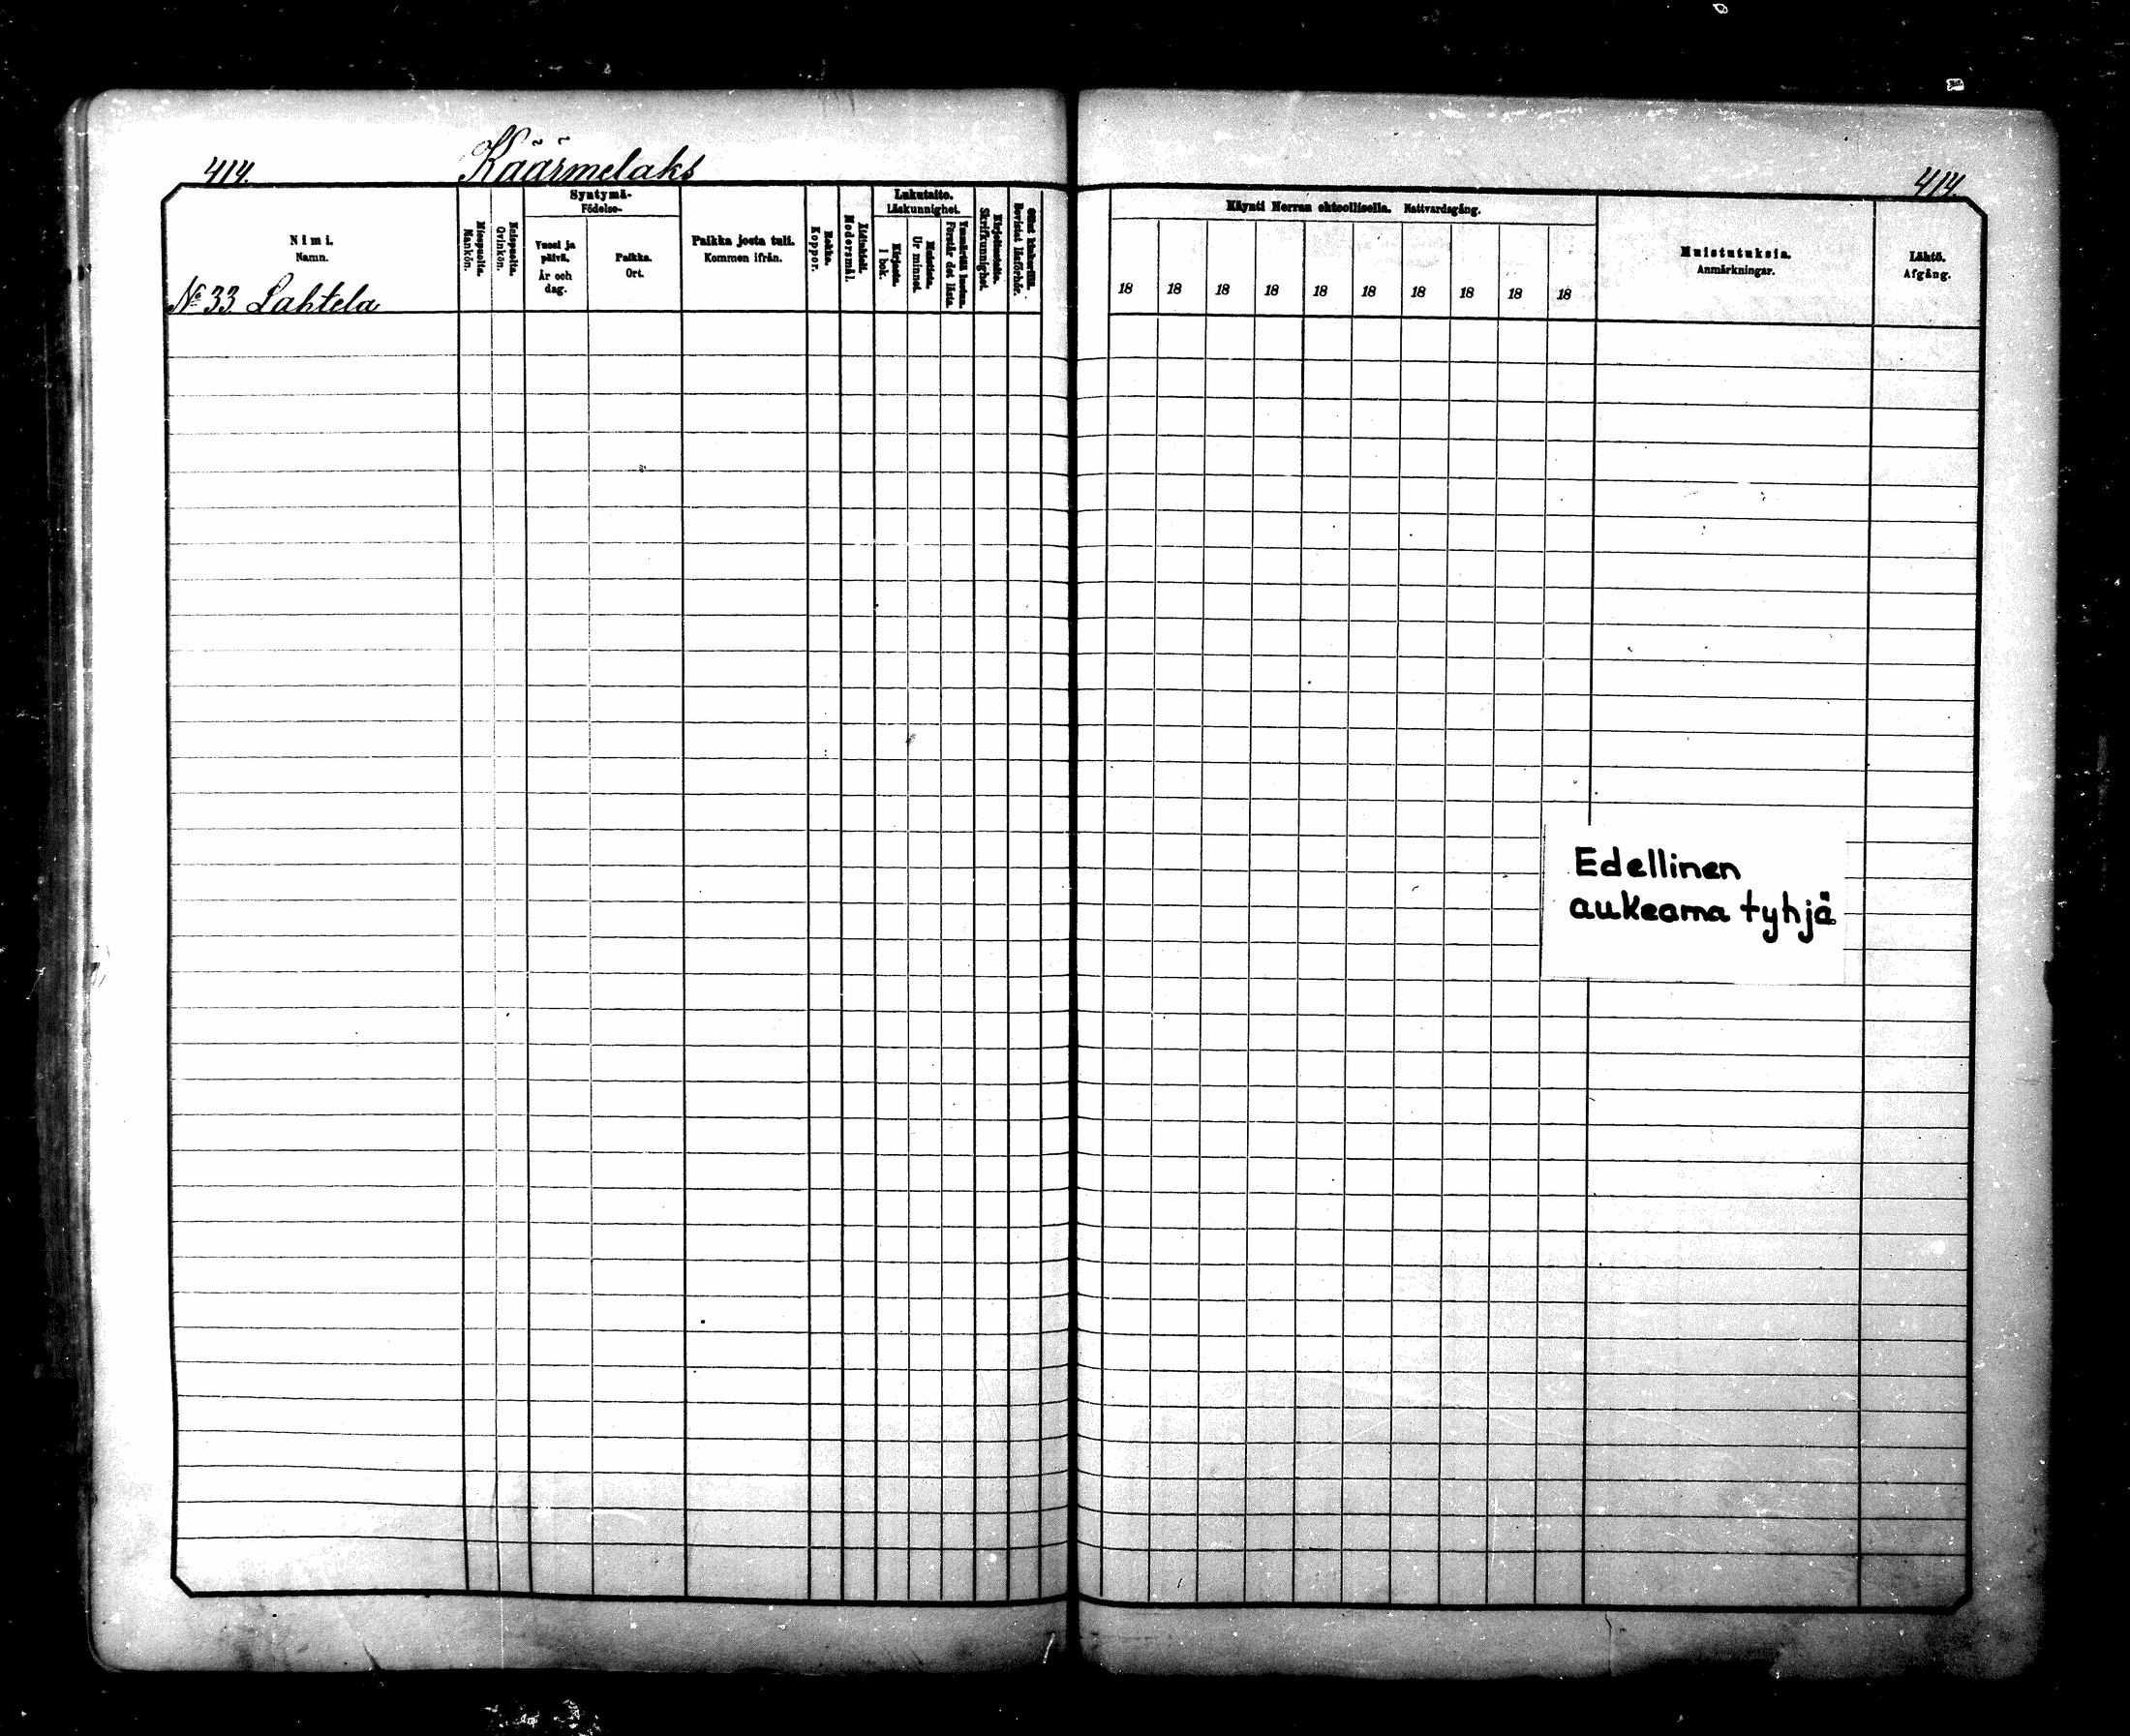 414. Käärmelaks
Nimi.
Namn.
No 33. Lahtela
Miespuolta.
Mankön.
Vaimopuolta.
Qvinkön.
Syntymä-
Födelse-
Vuosi ja
päivä.
År och
dag.
Paikka.
Ort.
Paikka josta tuli.
Kommen ifrån.
Rokko.
Koppor.
Äidinkieli.
Modersmål.
Lukutaito.
Läskunnighet.
Kirjasta.
I bok.
Muistista.
Ur minnet.
Förstår det lästa.
Skrifkunnighet
Bevistat läsförhör.
414.
Käynti Herran ehtoollisella. Nattvardsgång.
18 18 18 18 18 18 18 18 18 18
Muistutuksia.
Anmärkningar.
Lähtö.
Afgång.
Edellinen
aukeama tyhjä